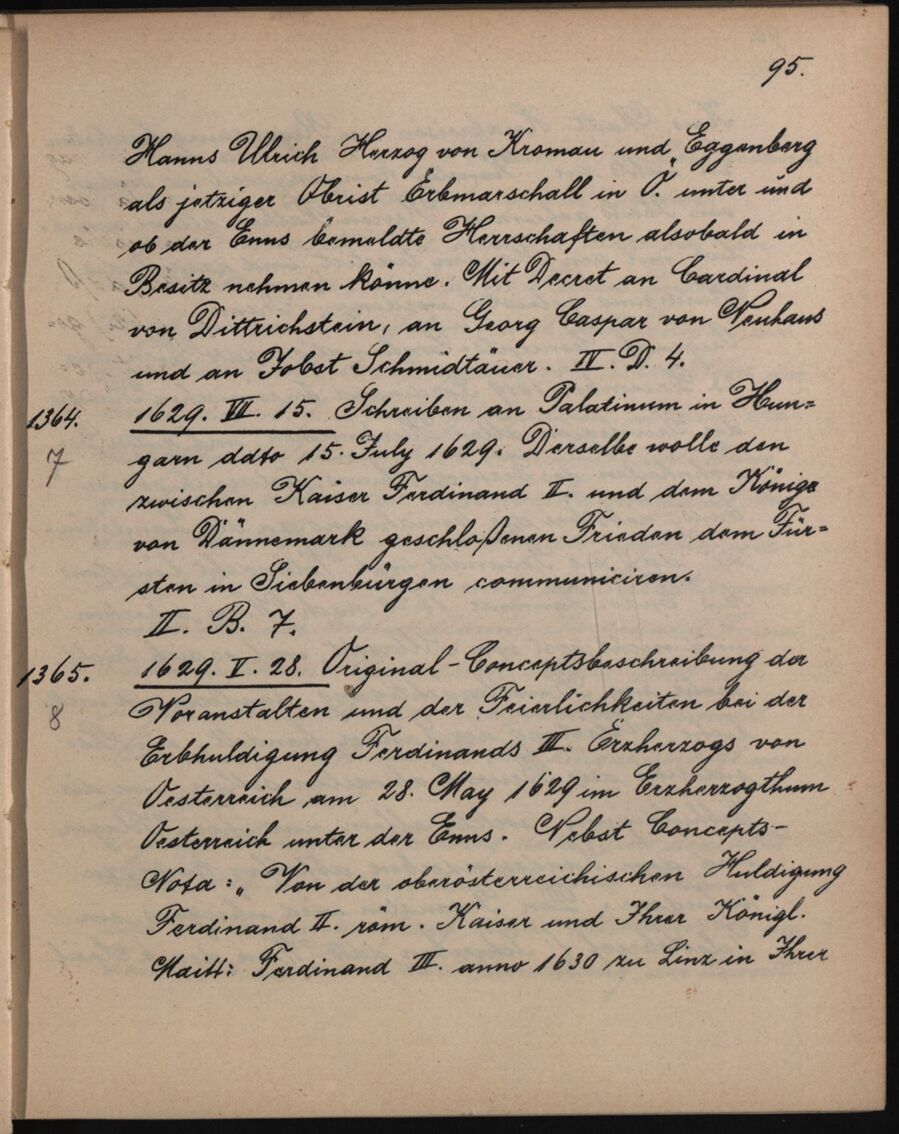 95.
Hanns Ulrich Herzog von Kromau und Eggenberg
als jetziger Obrist Erbmarschall in Ö. unter und
ob der Enns bemeldte Herrschaften alsobald in
Besitz nehmen könne. Mit Decret an Cardinal
von Dittrichstein, an Georg Caspar von Neuhaus
und an Jobst Schmidtäuer. IV. D. 4.
1364. 1629. VII. 15. Schreiben an Palatinum in Hun=
7 garn ddto 15. July 1629. Derselbe wolle den
zwischen Kaiser Ferdinand II. und dem Könige
von Dännemark geschloßenen Frieden dem Für=
sten in Siebenbürgen communiciren.
II. B. 7.
1365. 1629. V. 28. Original-Conceptsbeschreibung der
8 Voranstalten und der Feierlichkeiten bei der
Erbhuldigung Ferdinands III. Erzherzogs von
Oesterreich am 28. May 1629 im Erzherzogthum
Oesterreich unter der Enns. Nebst Concepts-
Nota: „Von der oberösterreichischen Huldigung
Ferdinand II. röm. Kaiser und Ihrer Königl.
Maitt: Ferdinand III. anno 1630 zu Linz in Ihrer